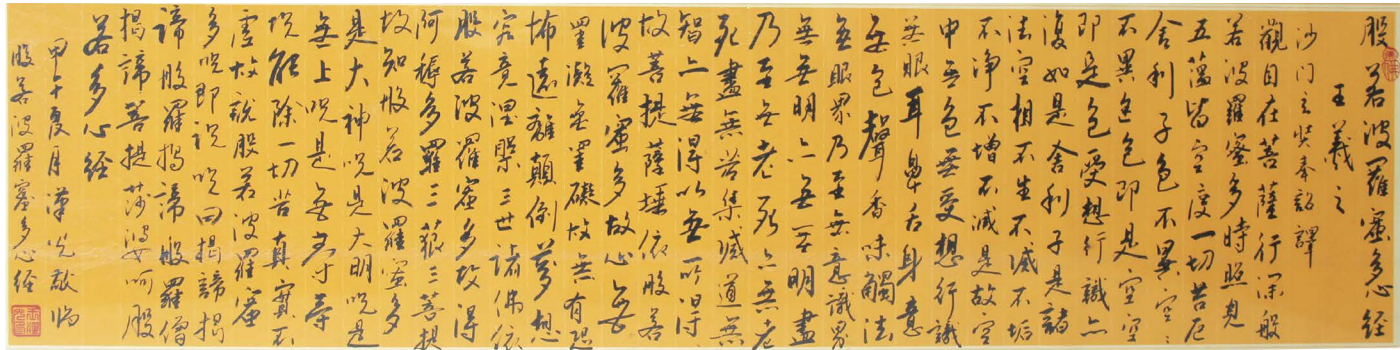 般若波羅蜜多心経
王羲之
沙門玄奘奉詔譯
觀自在菩薩行深般
若波羅蜜多時照見
五蘊皆空度一切苦厄
舍利子色不異空空
不異色色即是空空
即是色受想行識亦
復如是舍利子是諸
法空相不生不滅不垢
不淨不增不減是故空
中無色無受想行識
無眼耳鼻舌身意
無色聲香味觸法
無眼界乃至無意識界
無無明亦無無明盡
乃至無老死亦無老
死盡無苦集滅道無
智亦無得以無所得
故菩提薩埵依般若
波羅蜜多故心無
罣礙無罣礙故無有恐
怖遠離顛倒夢想
究竟涅槃三世諸佛依
般若波羅蜜多故得
阿耨多羅三藐三菩提
故知般若波羅蜜多
是大神咒是大明咒是
無上咒是無等等
咒能除一切苦真實不
虛故說般若波羅蜜
多咒即說咒曰揭諦揭
諦般羅揭諦般羅僧
揭諦菩提莎婆呵般
若多心経
甲午夏月漢光敬临
般若波羅蜜多心経